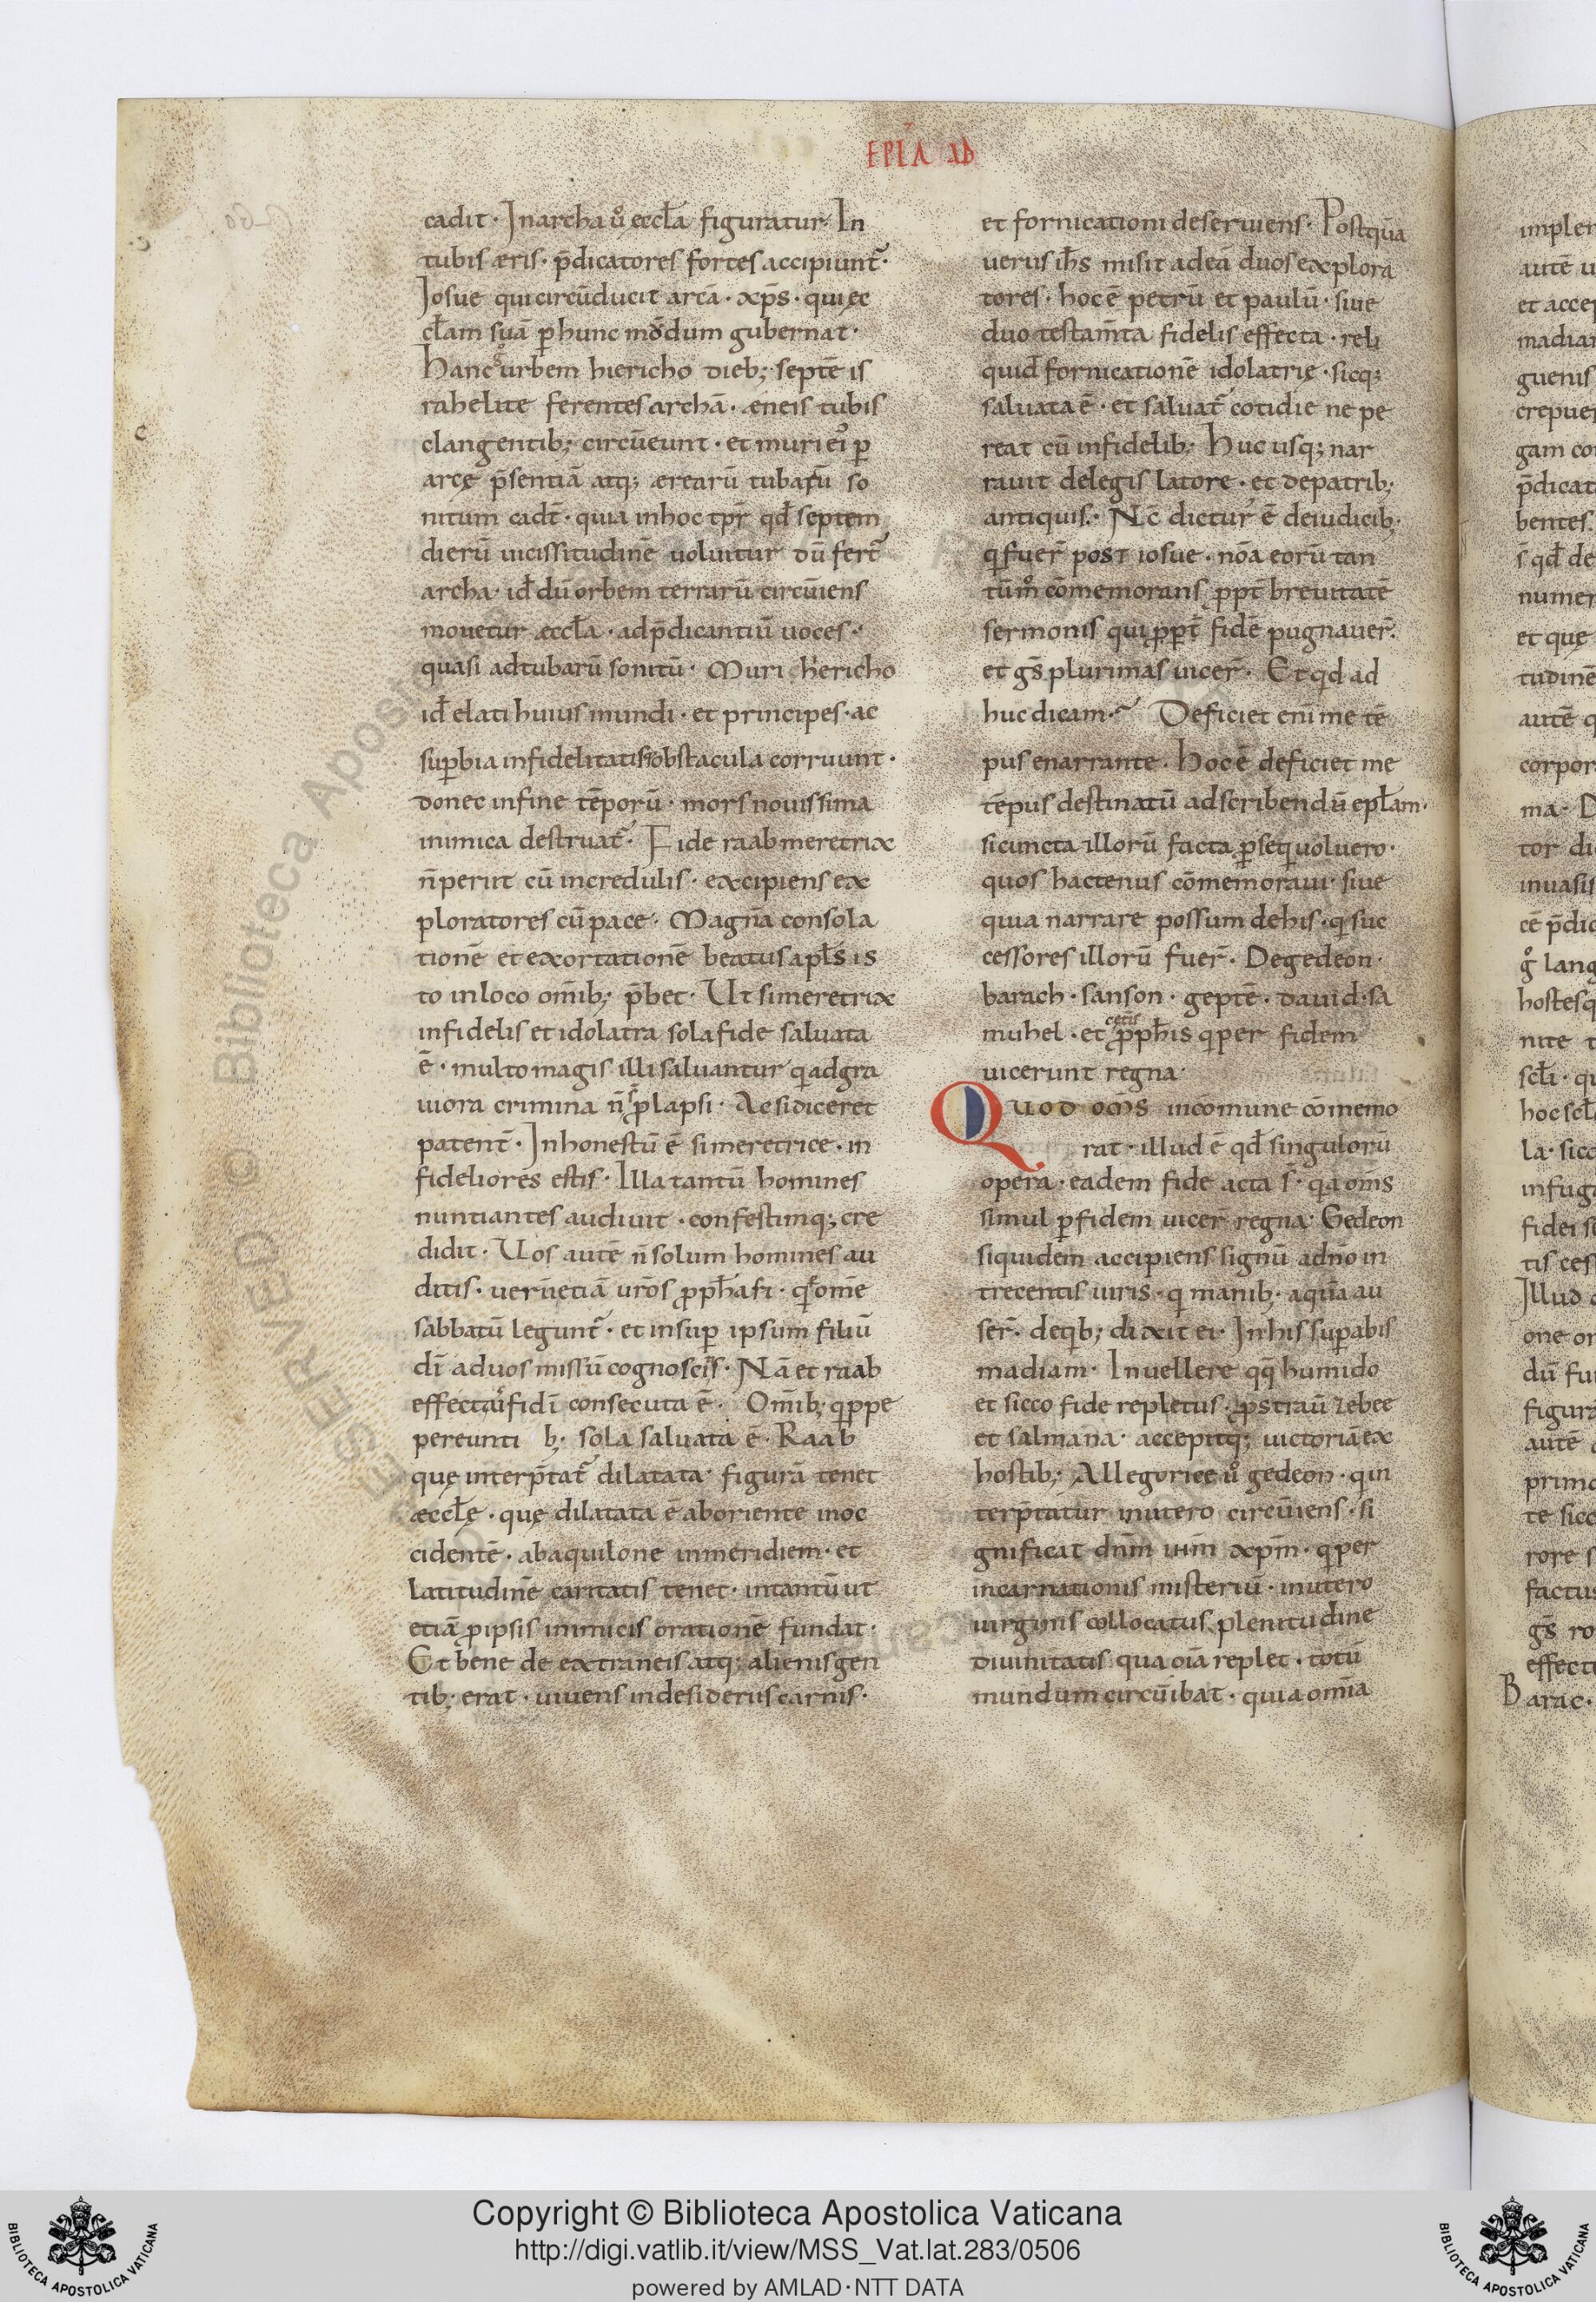 EPĽA AD
cadit· Jn archa ů ęccła figuratur· In
tubis æris· p̄dicatores fortes accipiunt᷑·
Josue qui circūducit arcā· xp̄s· qui ęc
cłam suā ꝑ hunc modum gubernat·
Hanc urbem hiericho dieb; septē is
rahelite ferentes archā· æneis tubis
clangentib; circūeunt· et muri ei᷒ ꝑ
arcę p̄sentiā atq; ærearū tubarū so
nitum cadt̄· quia in hoc tp̄r qđ septem
dierū uicissitudinē uoluitur dū fert᷑
archa· iđ dū orbem terrarū circūiens
mouetur æccła· ad p̄dicantiū uoces·
quasi ad tubarū sonitū· Muri hiericho
iđ elati huius mundi· et principes· ac
suꝑbia infidelitatis obstacula corruunt·
donec in fine tēporū· mors nouissima
inimica destruat᷑· Fide raab meretrix
n̄ periit cū incredulis· excipiens ex
ploratores cū pace· Magnā consola
tionē et exortationē beatus apłs is
to in loco om̄ib; p̄bet· Ut si meretrix
infidelis et idolatra sola fide saluata
ē· multo magis illi saluantur qui ad gra
uiora crimina n̄ s̄ prolapsi· Ac si diceret
patent̄· Inhonestū ē si meretrice· in
fideliores estis· Illa tantū homines
nuntiantes audiuit· confestimq; cre
didit· Uos autē n̄ solum homines au
ditis· uerū etiā uros ꝓph̄as· q̄ ome
sabbatū legunt᷑· et insuꝑ ipsum filiū
dī ad uos missū cognoscitis· Nā et raab
effectū fidī consecuta ē· Om̄ib; q̄ppe
pereunti b; sola saluata ē· Raab
quę interp̄tat᷑ dilatata· figurā tenet
æcclę· quę dilatata ē ab oriente in oc
cidentē· ab aquilone in meridiem· et
latitudinē caritatis tenet· in tantū ut
etiā ꝓ ipsis inimicis orationē fundat·
Et bene de extraneis atq; alienis gen
tib; erat· uiuens in desideriis carnis·
et fornicationi deseruiens· Postquā
uerus ih̄s misit ad eā duos explora
tores· hoc ē petrū et paulū· siue
duo testam̄ta fidelis effecta· reli
quid fornicationē idolatrię· sicq;
saluata ē· et saluat᷑ cotidie ne pe
reat cū infidelib; Huc usq; nar
rauit de legis latore· et de patrib;
antiquis· Nc̄ dictur᷒ ē de iudicib;
q̄ fuer̄ post iosue· nōa eorū tan
tūm̊ cōmemorans ꝓpt̄ breuitatē
sermonis qui ꝓpt̄ fidē pugnauer̄·
et gs̄ plurimas uicer̄· Et qd ad
huc dicam· Deficiet enī me tē
pus enarrante· Hoc ē deficiet me
tēpus destinatū ad scribendū epłam·
si cuncta illorū facta ꝑsequi uoluero·
quos hactenus cōmemoraui· siue
quia narrare possum de his· q̄ suc
cessores illorū fuer̄· De gedeon·
barach· sanson· geptē· dauid· sa
muhel· et cetis ꝓph̄is q̄ per fidem
uicerunt regna·
QUOD OM̄S in comune cōmemo
rat· illud ē qđ singulorū
opera· eadem fide acta s̄· q̄a om̄s
simul ꝑ fidem uicer̄ regna· Gedeon
siquidem accipiens signū a dn̄o in
trecentis uiris· q̄ manib; aquā au
ser̄· de q̄b; dixit ei· In his suꝑabis
madiam· In uellere qq̄ humido
et sicco fide repletus· ꝓstrau̅ zebee
et salmana· accepitq; uictoriā ex
hostib; Allegorice ů gedeon· q̄ in
terp̄tatur in utero circūiens· si
gnificat dn̄m n̄rm xp̄m· q̄ per
incarnationis misteriū· in utero
uirginis collocatus plenitudine
diuinitatis qua oīa replet· totū
mundum circūibat· quia omīa
Copyright © Biblioteca Apostolica Vaticana
http://digi.vatlib.it/view/MSS_Vat.lat.283/0506
powered by AMLAD·NTT DATA
BIBLIOTECA APOSTOLICA VATICANA
BIBLIOTECA APOSTOLICA VATICANA